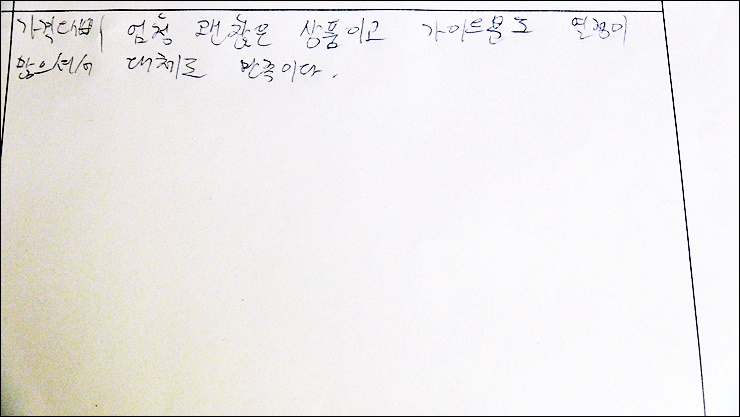 가격대비 엄청 괜찮은 상품이고 가이드분도 열정이
많으셔서 대체로 만족이다.